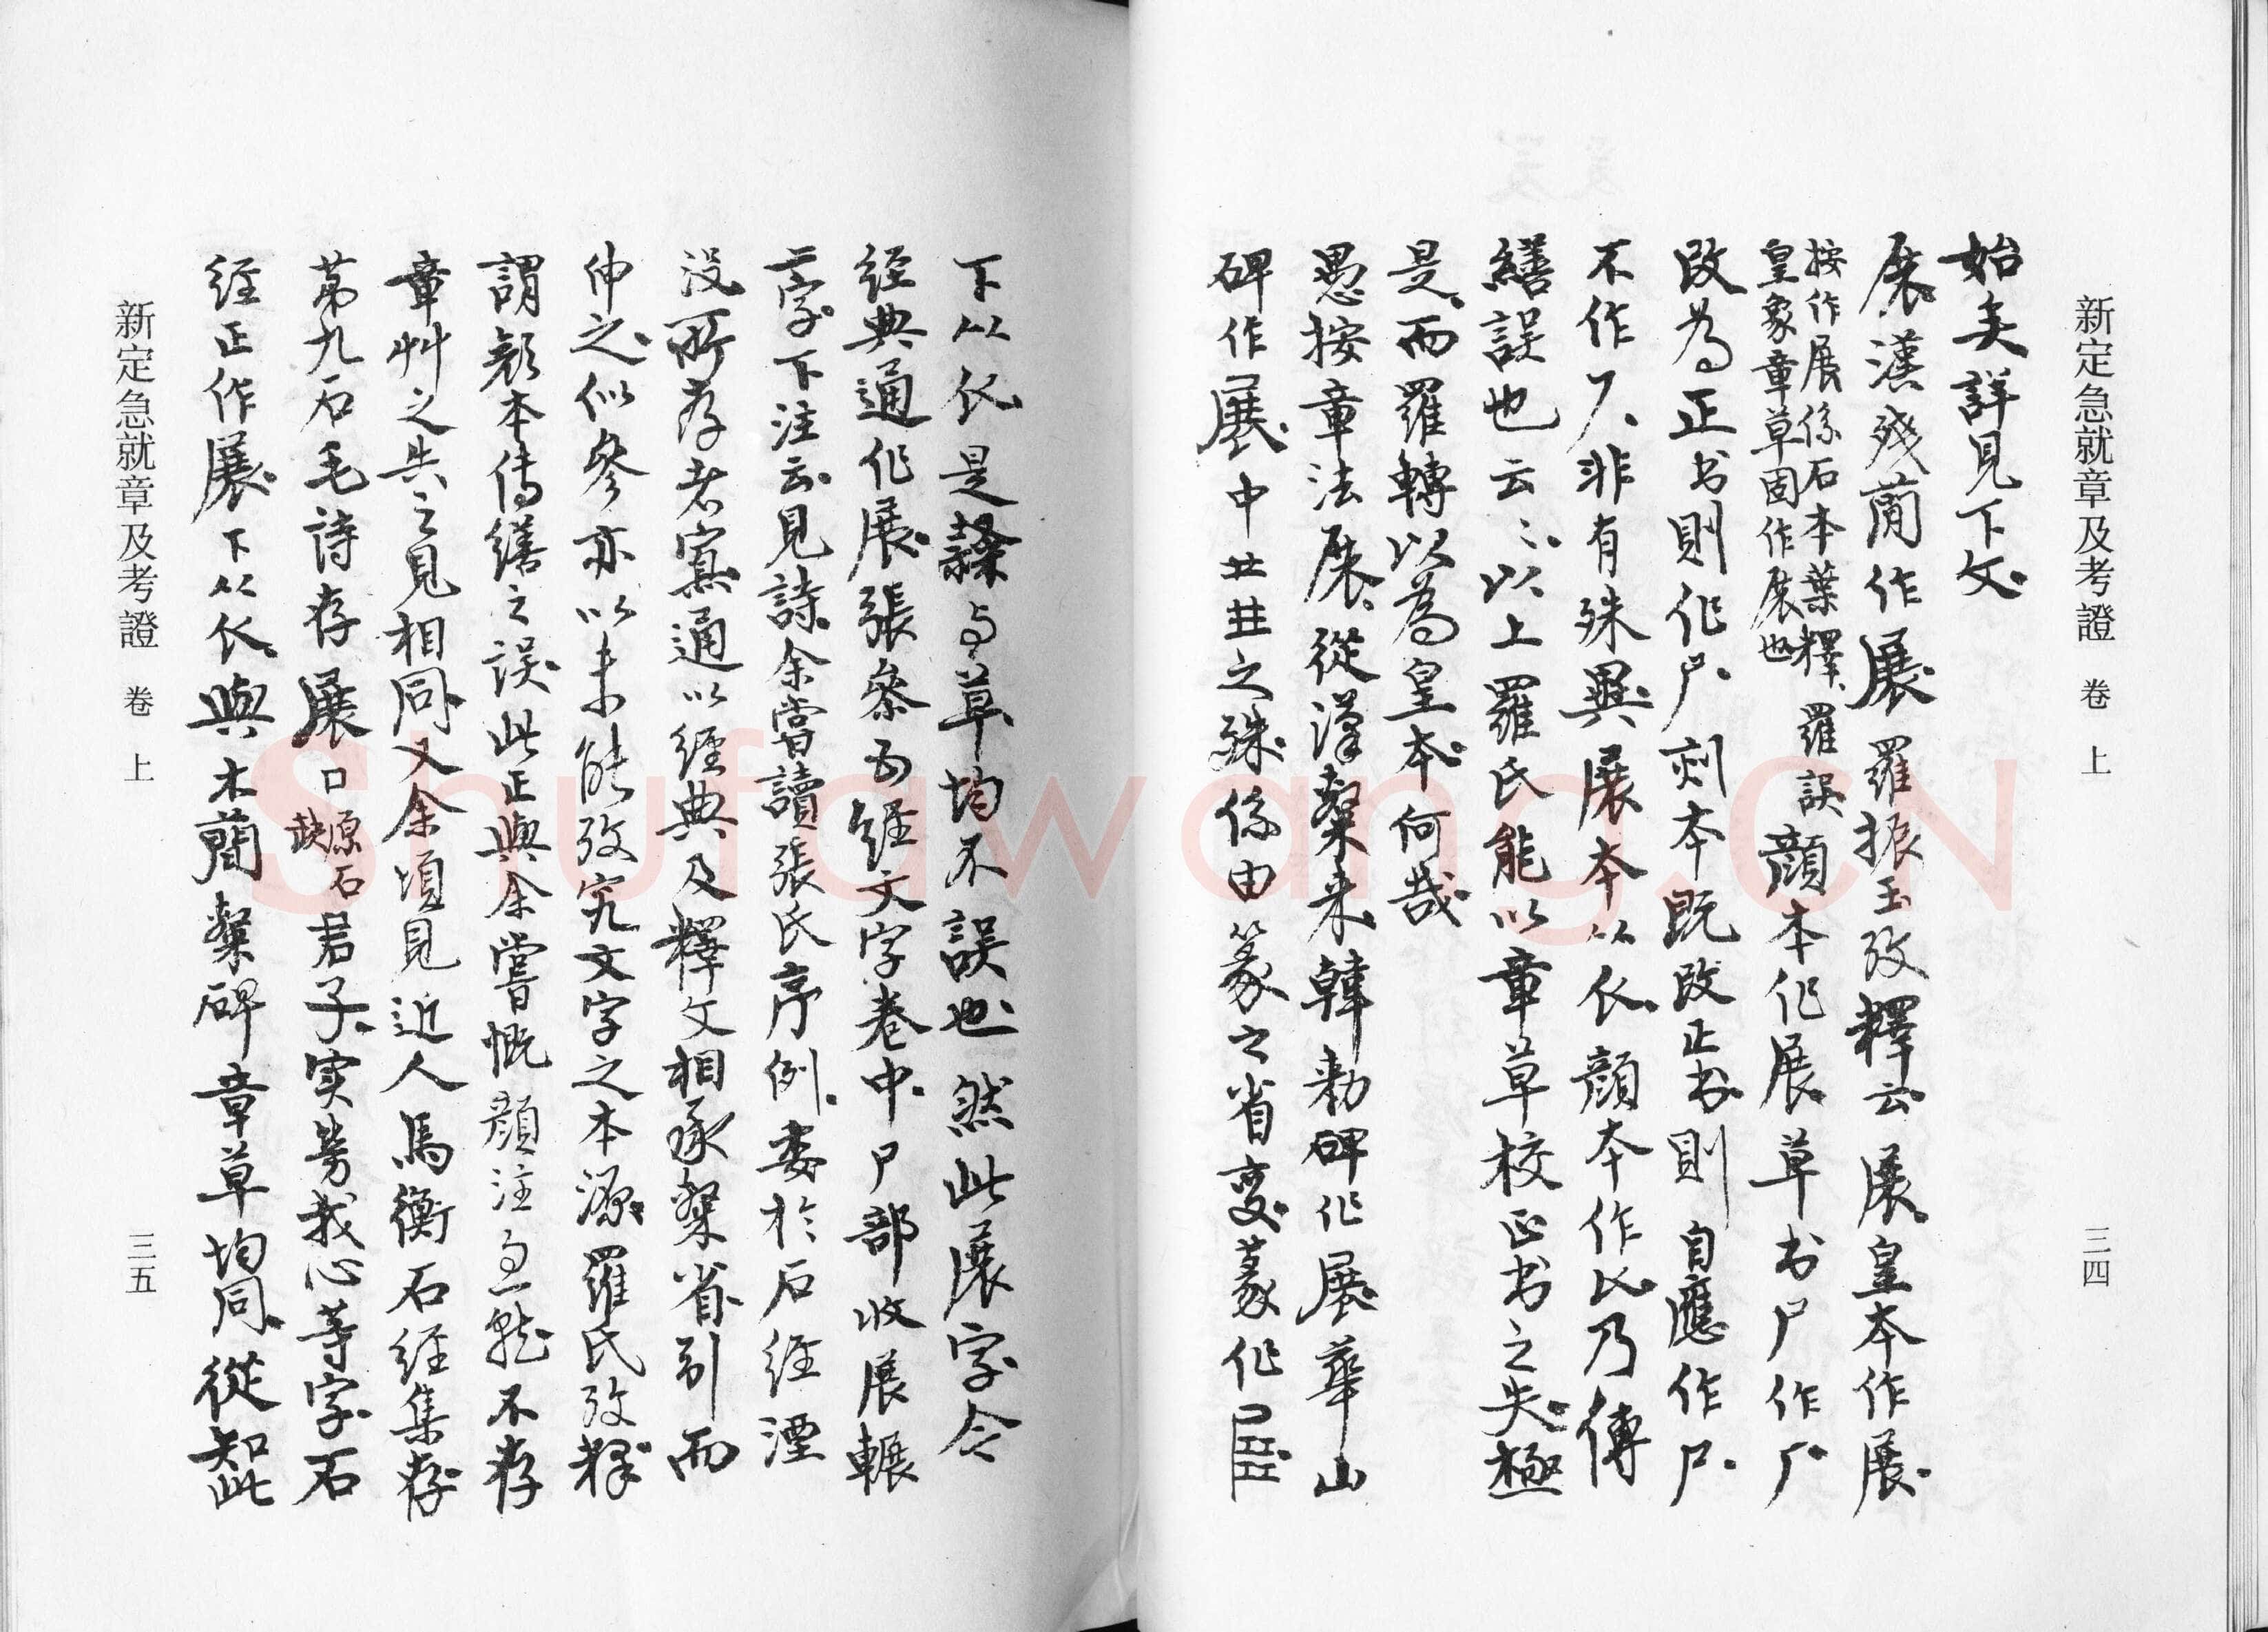 新定急就章及考證 卷上 三四
始矣詳見下文
展漢殘簡作展羅振玉攷釋云展皇本作展
按作展係石本葉釋羅誤
皇象章草固作展也
顏本作展草书尸作厂
改為正书則作尸刻本既改正书則自應作尸
不作厂非有殊異展本从㐺顏本作比乃傳
繕誤也云〻以上羅氏能以章草校正书之失極
是而羅轉以為皇本何哉
愚按章法展從漢隸来韓勅碑作展華山
碑作展中之殊係由篆之省变篆作
下从㐺是隸与草均不誤也然此展字今
經典通作展張參五經文字卷中尸部收展輾
二字下注云見詩余嘗讀張氏序例委於石經湮
沒所存者寡通以經典及釋文相承隸省引而
伸之似參亦以未能攷究文字之本源羅氏攷釋
謂顏本傳繕之誤此正與余嘗慨顏注急就不存
章艸之失之見相同又余頃見近人馬衡石經集存
苐九石毛詩存展口
原石
缺
君子实勞我心等字石
經正作展下从㐺與木簡隸碑章草均同從知此
新定急就章及考證 卷上 三五
Shufawang.CN